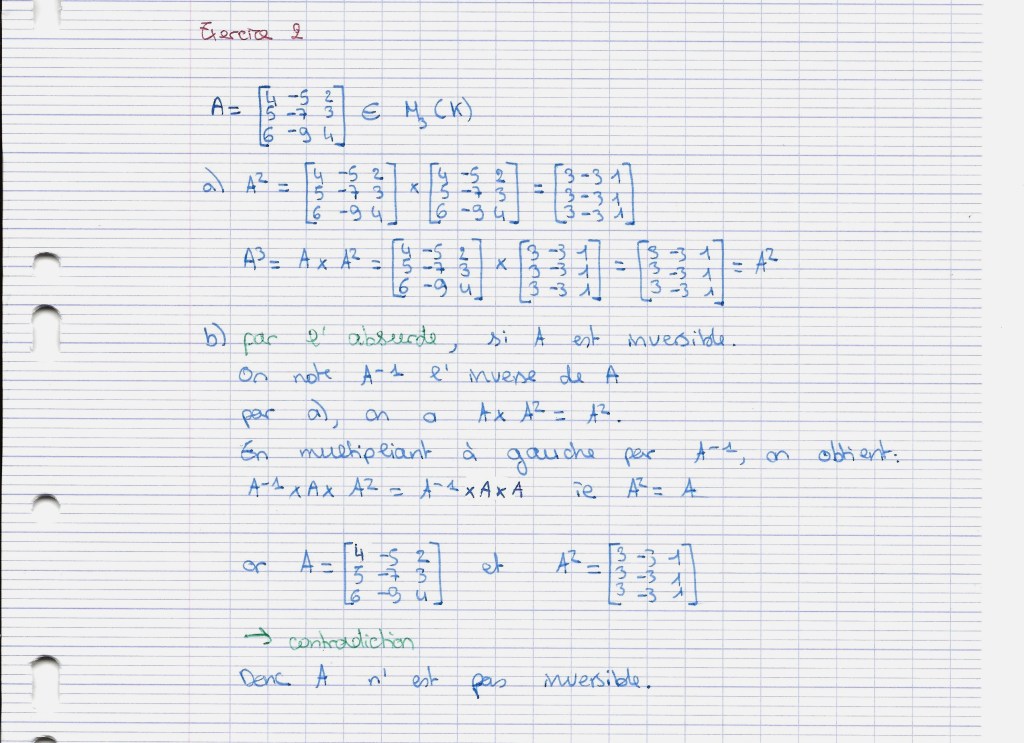 Exercice 2
A = [4 -5 2; 5 -7 3; 6 -9 4] ∈ M₃(K)
a) A² = [4 -5 2; 5 -7 3; 6 -9 4] × [4 -5 2; 5 -7 3; 6 -9 4] = [3 -3 1; 3 -3 1; 3 -3 1]
A³ = A × A² = [4 -5 2; 5 -7 3; 6 -9 4] × [3 -3 1; 3 -3 1; 3 -3 1] = [3 -3 1; 3 -3 1; 3 -3 1] = A²
b) par l'absurde, si A est inversible.
On note A⁻¹ l'inverse de A
par a), on a A × A² = A².
En multipliant à gauche par A⁻¹, on obtient:
A⁻¹ × A × A² = A⁻¹ × A × A ie A² = A
or A = [4 -5 2; 5 -7 3; 6 -9 4] et A² = [3 -3 1; 3 -3 1; 3 -3 1]
→ contradiction
Donc A n'est pas inversible.